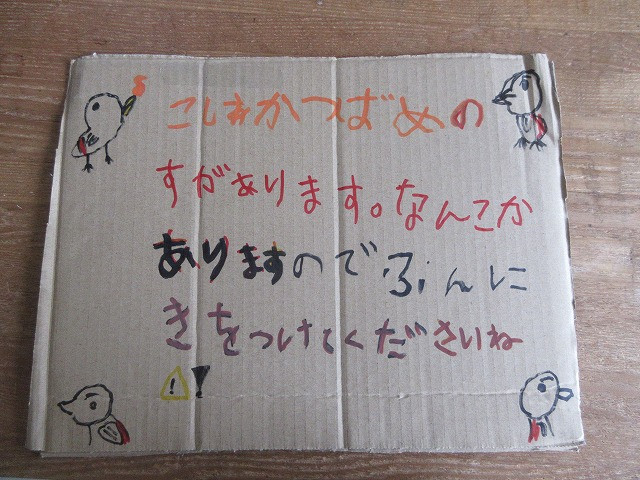 こしあかつばめの
すがあります。なんこか
ありますのでふんに
きをつけてくださいね
⚠!